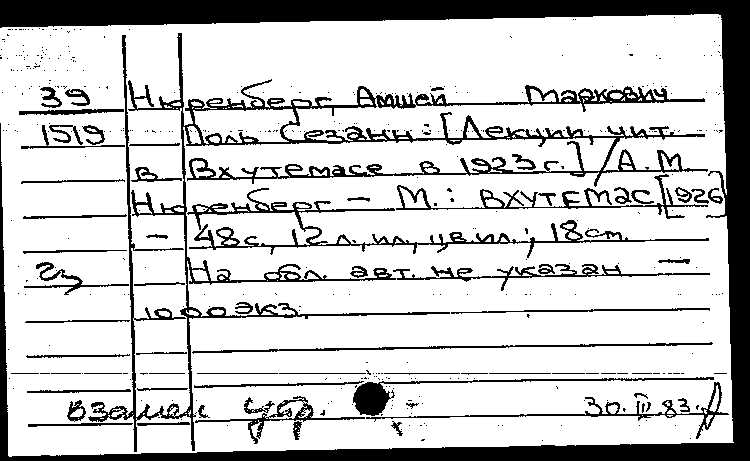 39 Нюренберг, Амшей Маркович
1519 Поль Сезанн: [Лекции, чит.
в Вхутемасе в 1923 г.] / А.М.
Нюренберг – М.: ВХУТЕМАС, [1926]
– 48 с., 12 л., ил., цв.ил.; 18 см.
На обл. авт. не указан –
1000 экз.
взамен утр. 30.III.83.